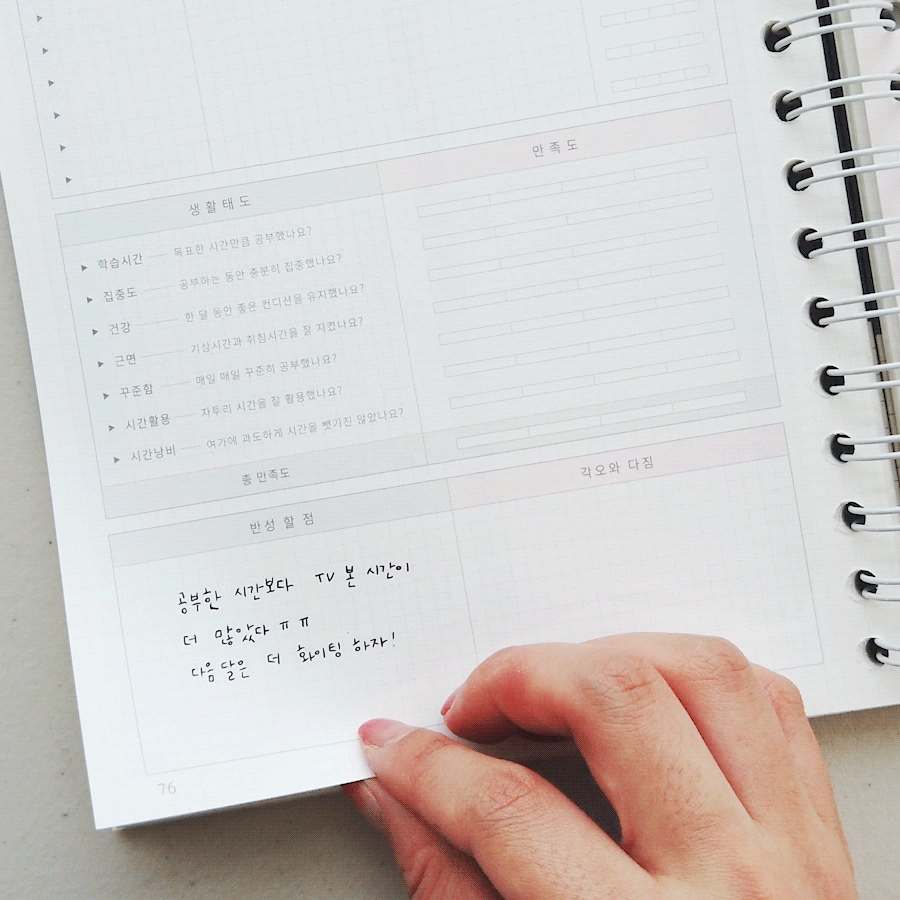 생활태도
만족도
▶ 학습시간 —— 목표한 시간만큼 공부했나요?
▶ 집중도 —— 공부하는 동안 충분히 집중했나요?
▶ 건강 —— 한 달 동안 좋은 컨디션을 유지했나요?
▶ 근면 —— 기상시간과 취침시간을 잘 지켰나요?
▶ 꾸준함 —— 매일 매일 꾸준히 공부했나요?
▶ 시간활용 —— 자투리 시간을 잘 활용했나요?
▶ 시간낭비 —— 여가에 과도하게 시간을 뺏기진 않았나요?
총 만족도
반성 할 점
각오와 다짐
공부한 시간보다 TV 본 시간이
더 많았다 ㅠㅠ
다음 달은 더 화이팅 하자!
76